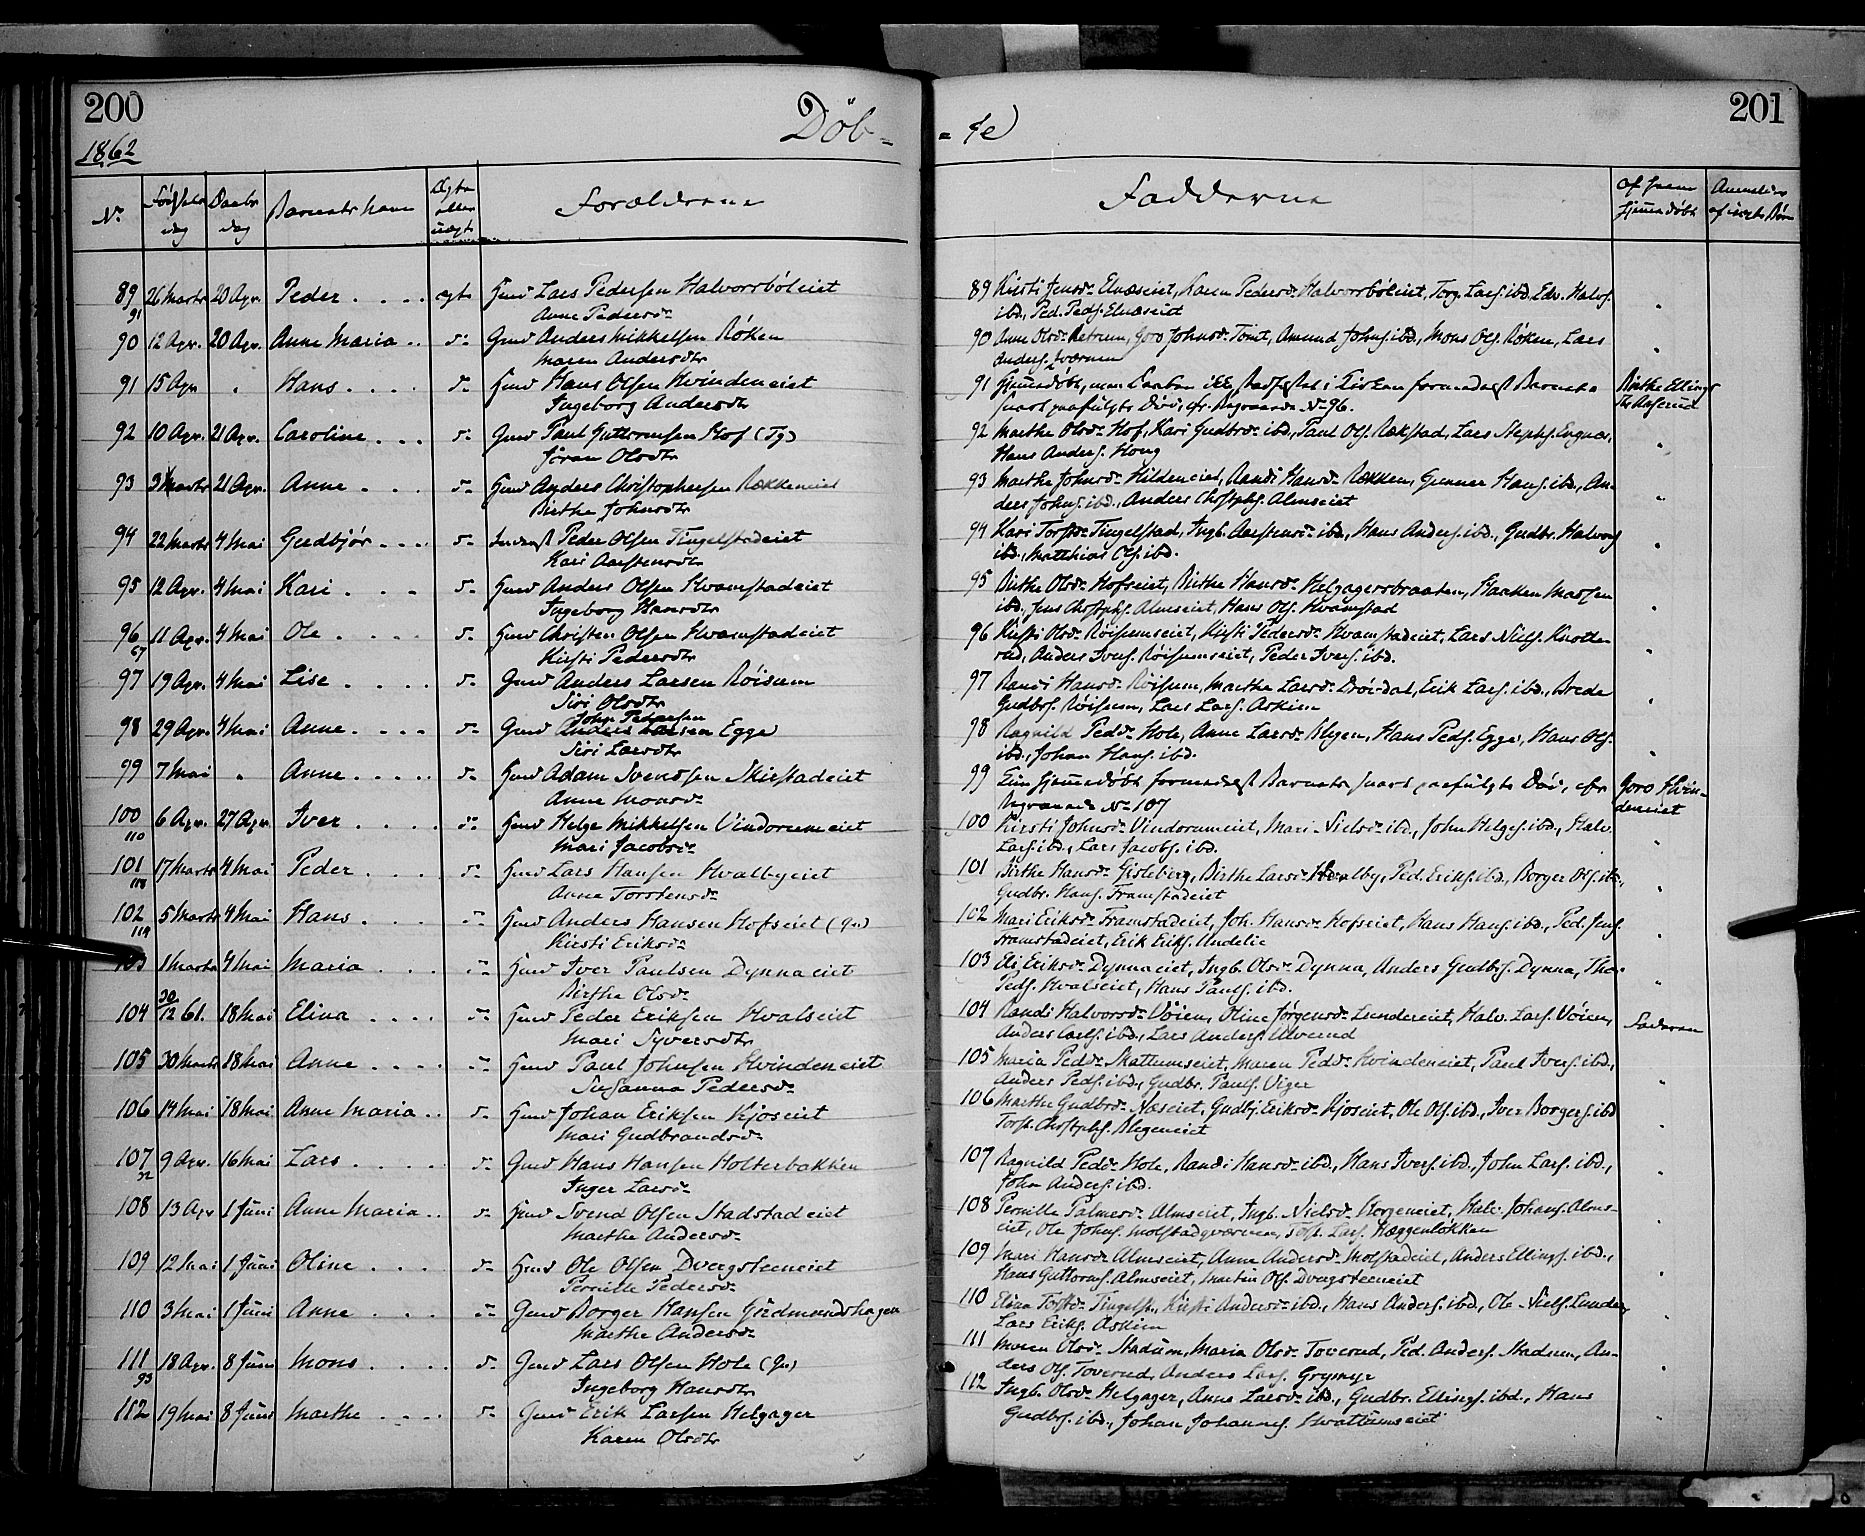 200
1862
Döb-
No
Fødsels dag
Daabs dag
Barnets Navn
Ægte eller uægte
Forældrene
89 26 Marts 20 Apr. Peder ægte Huusmd Lars Pedersen Halvorsböleiet
91 Anne Pedersd.
90 12 Apr. 20 Apr. Anne Maria d. Gmd Anders Mikkelsen Røken
Maren Andersdtr
91 15 Apr " Hans d. Hmd Hans Olsen Hvindeneiet
Ingeborg Andersdtr
92 10 Apr. 21 Apr. Caroline d. Gmd Paul Guttormsen Hof (Tg)
Jöran Olsdtr
93 3 Marts 21 Apr. Anne d. Hmd Anders Christophersen Rækkeneiet
Birthe Johnsdtr
94 22 Marts 4 Mai Gudbjör d. Inderst Peder Olsen Tingelstadeiet
Kari Aarstensdtr
95 12 Apr. 4 Mai Kari d. Hmd Anders Olsen Hvamstadeiet
Ingeborg Hansdtr
96 11 Apr. 4 Mai Ole d. Hmd Christen Olsen Hvamstadeiet
67 Kirsti Pedersdtr
97 19 Apr. 4 Mai Lise d. Gmd Anders Larsen Röisum
Siri Olsdtr
John Pedersen
98 29 Apr. 4 Mai Anne d. Gmd Anders Larsen Egge
Siri Larsdtr
99 7 Mai " Anne d. Hmd Adam Svendsen Skirstadeiet
Anne Monsd.
100 6 Apr. 27 Apr. Iver d. Hmd Helge Mikkelsen Vindorumeiet
110 Mari Jacobsd.
101 17 Marts 4 Mai Peder d. Hmd Lars Hansen Hvalbyeiet
118 Anne Torstensd.
102 5 Marts 4 Mai Hans d. Hmd Anders Hansen Hofseiet (Gr)
119 Kirsti Eriksd.
103 1 Marts 4 Mai Maria d. Hmd Iver Paulsen Dynnaeiet
Birthe Olsd.
104 30/12 61. 18 Mai Elina d. Hmd Peder Eriksen Hvalseiet
Mari Syversdtr
105 30 Marts 18 Mai Anne d. Hmd Paul Johnsen Hvindeneiet
Susanna Pedersd.
106 14 Mai 18 Mai Anne Maria d. Hmd Johan Eriksen Kjoseiet
Mari Gudbrandsd.
107 9 Apr. 16 Mai Lars d. Gmd Hans Hansen Holterbakken
32 Inger Larsd.
108 13 Apr 1 Juni Anne Maria d. Hmd Svend Olsen Stadstadeiet
Marthe Andersd.
109 12 Mai 1 Juni Oline d. Hmd Ole Olsen Dvergsteeneiet
Pernille Pedersd.
110 3 Mai 1 Juni Anne d. Gmd Borger Hansen Girdmundshagen
Marthe Andersd.
111 18 Apr. 8 Juni Mons d. Gmd Lars Olsen Hole (Gr)
93 Ingeborg Hansdtr
112 19 Mai 8 Juni Marthe d. Gmd Erik Larsen Helgager
Karen Olsdtr
201
-te
Fadderne
af hvem hjemmedøbt
Anmelder af uægte Børn
89 Kirsti Jensd. Elnæseiet, Karen Pedersd. Halvorsböleiet, Torg. Lars. ibd., Edv. Halvs.
ibd., Ped. Peds. Elnæseiet
90 Anne Olsd. Røken, Goro Johnsd. Tomt, Amund Johns. ibd., Mons Ols. Røken, Lars
Anders. Sværen
91 Hjemmedöbt, men Daaben ikke stadfæstet i Kirken formedelst Barnets Birthe Ellings
snart paafulgte Död, cfr. Begravede No 96. dtr Aaserud
92 Marthe Olsd. Hof, Kari Gudbrd. ibd., Paul Ols. Rækstad, Lars Steph. Engnæs,
Hans Anders. Houg
93 Marthe Johnsd. Hildeneiet, Randi Hansd. Rækken, Gunner Hans. ibd., An-
ders Johns. ibd., Anders Chrstphs. Almseiet
94 Kari Torstsd. Tingelstad, Ingb. Aarstensd. ibd., Hans Anders. ibd., Gudbr. Halvors
ibd., Matthias Ols. ibd.
95 Birthe Olsd. Hofseiet, Birthe Hansd. Helgagersbraaten, Haaken Madsen
ibd., Jens Chrstphs. Almseiet, Hans Ols. Hvamstad
96 Kirsti Olsd. Röisumseiet, Kirsti Pedersd. Hvamstadeiet, Lars Niels. Knotte-
rud, Anders Ivers. Röisumseiet, Peder Ivers. ibd.
97 Randi Hansd. Röisum, Marthe Larsd. Dröidal, Erik Lars. ibd., Brede
Gudbs. Röisum, Lars Lars. Askim
98 Ragnild Pedd. Hole, Anne Larsd. Blegen, Hans Peds. Egge, Hans Ols.
ibd., Johan Hans. ibd.
99 Kun hjemmedöbt formedelst Barnets snart paafulgte Död, cfr Goro Hvin-
Begravede No 107 deneiet
100 Kirsti Johnsd. Vindorumeiet, Mari Nielsd. ibd., John Helges. ibd., Halv.
Lars. ibd., Lars Jacobs. ibd.
101 Birthe Hansd. Gisleberg, Birthe Larsd. Hvalby, Ped. Eriks. ibd., Borger Ols. ibd.,
Gudbr. Hans. Framstadeiet
102 Mari Eriksd. Framstadeiet, Joh. Hansd. Hofseiet, Hans Hans. ibd., Ped. Jens.
Framstadeiet, Erik Eriks. Andelie
103 Eli Eriksd. Dynnaeiet, Ingb. Olsd. Dynna, Anders Gudbs. Dynna, Tho.
Peds. Hvalseiet, Hans Pauls. ibd.
104 Randi Halvorsd. Vöien, Oline Jörgensd. Lundereiet, Halv. Lars. Vöien, Faderen
Anders Carls. ibd., Lars Anders. Ulverud
105 Maria Pedd. Skattumseiet, Maren Pedd. Hvindeneiet, Paul Ivers. ibd.,
Anders Peds. ibd., Gudbr. Pauls. Viger
106 Marthe Gudbrd. Næseiet, Gudbj. Eriksd. Kjoseiet, Ole Ols. ibd., Iver Borgers. ibd
Torst. Chrstphs. Blegeneiet
107 Ragnild Pedd. Hole, Randi Hansd. ibd., Hans Ivers. ibd., John Lars. ibd.,
John Anders. ibd.
108 Pernille Palmesd. Almseiet, Ingb. Nielsd. Horgeneiet, Halv. Johans. Alms-
eiet, Ole Johns. Molstadqværnen, Torst. Lars. Hæggenløkken
109 Mari Hansd. Almseiet, Anne Andersd. Molstadeiet, Anders Ellings. ibd.,
Hans Guttorms. Almseiet, Martin Ols. Dvergsteeneiet
110 Elina Torstd. Tingelst., Kirsti Andersd. ibd., Hans Anders. ibd., Ole Niels. Lunder,
Lars Eriks. Askim
111 Maren Olsd. Stadum, Maria Olsd. Toverud, Ped. Anders. Stadum, An-
ders Ols. Toverud, Anders Lars. Grymyr
112 Ingb. Olsd. Helgager, Anne Larsd. ibd., Gudbr. Ellings. ibd., Hans
Gudbs. ibd., Johan Johannes. Skattumseiet